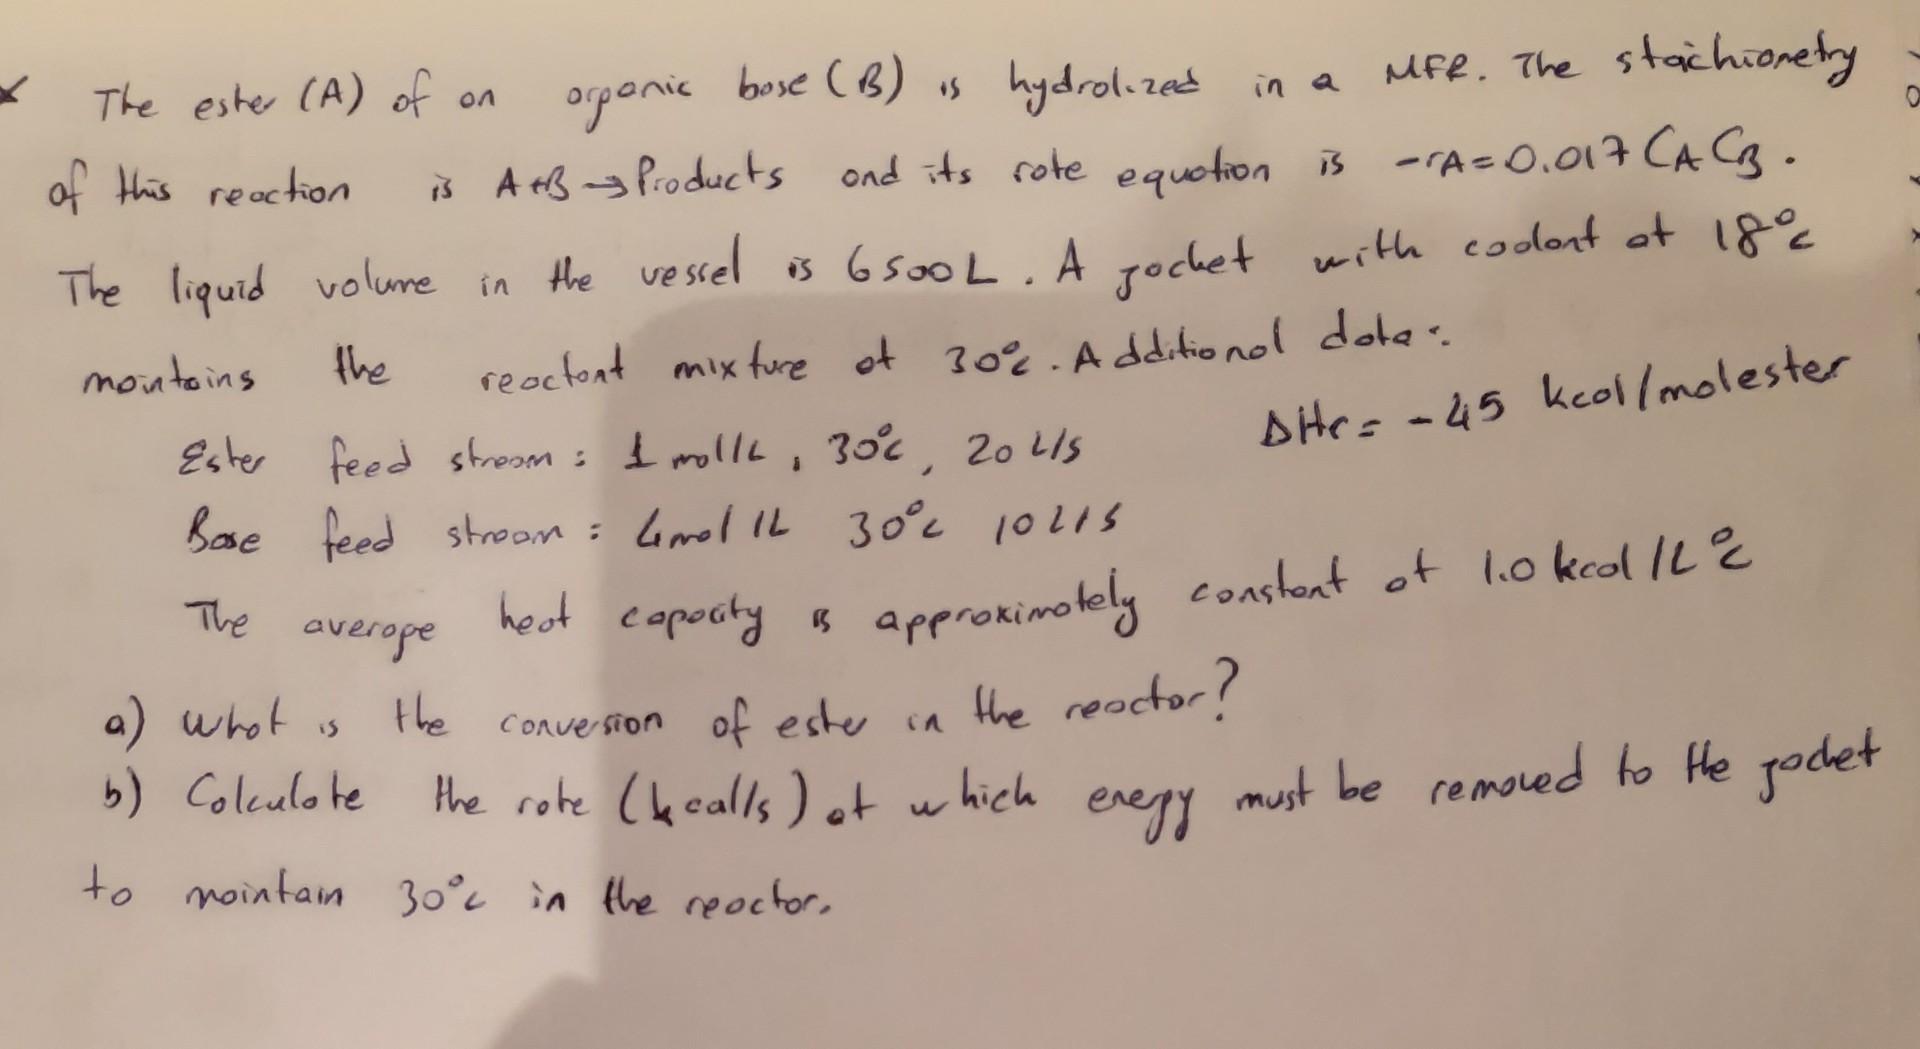 The ester (A) of an organic base (B) is hydrolized in a MFR. The stoichiometry
of this reaction is A+B → Products and its rate equation is -rA = 0.017 CA CB.
The liquid volume in the vessel is 6500 L. A jacket with coolant at 18°C
maintains the reactant mixture at 30°C. Additional data:
Ester feed stream: 1 mol/L, 30°C, 20 L/s ΔHr = -45 kcal/mol ester
Base feed stream: 4 mol/L 30°C 10 L/s
The average heat capacity is approximately constant at 1.0 kcal/L°C
a) What is the conversion of ester in the reactor?
b) Calculate the rate (kcal/s) at which energy must be removed to the jacket
to maintain 30°C in the reactor.